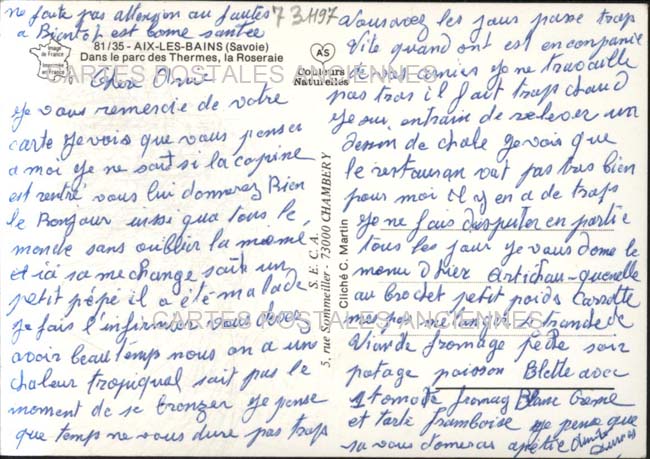 ne faite pas allension au fautes
a Bientot est bonne santée
7 3 1197
Image de France
Imprimée de France
81/35 - AIX-LES-BAINS (Savoie)
Dans le parc des Thermes, la Roseraie
AS
Couleurs Naturelles
CARTES POSTALES ANCIENNES
Cher Ami
Je vous remercie de votre
carte je vois que vous penser
a moi je ne sait si la copine
est rentré vous lui donnerez Bien
le Bonjour ussi qua tous le
monde sans oublier la mémé
et ici sa me change sait un
petit pépé il a été malade
je fais l'infirmier vous devez
avoir beau temps nous on a une
chaleur tropiqual sait pas le
moment de se bronzer je pense
que temps ne vous dure pas trop
S.E.C.A.
5, rue Sommeiller - 73000 CHAMBERY
Cliché C. Martin
Vous avez les jours passe trop
vite quand ont est en companie
de vos amies je ne travaille
pas trop il fait trop chaud
je suis entrain de relever un
dessin de chale je vois que
le restauran vat pas tres bien
pour moi il y en a de trop
je ne fais disputer en partie
tous les jour je vous dome le
menu d'hier Artichau - quenelle
au brochet petit poids Carrotte
mes pas me langoi 1 trande de
viande fromage pêche soir
potage poisson Blette avec
1 tomate fromag Blanc Crème
et tarte framboise je pense que
sa vous domeras apetit
CARTES POSTALES ANCIENNES